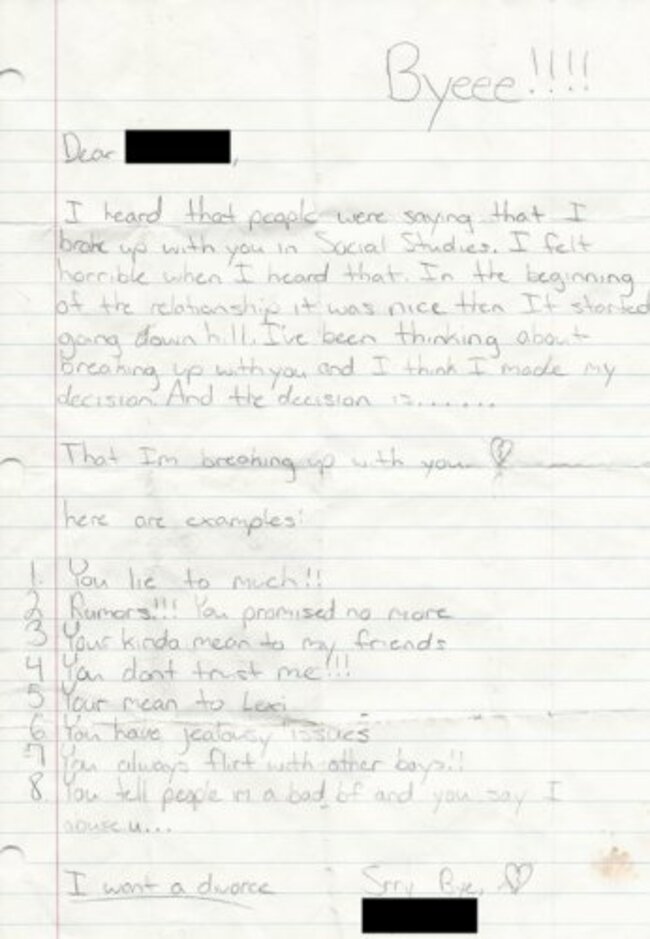 Byeee!!!!
Dear ,
I heard that people were saying that I
broke up with you in Social Studies. I felt
horrible when I heard that. In the beginning
of the relationship it was nice then It started
going down hill. I've been thinking about
breaking up with you and I think I made my
decision. And the decision is.......
That Im breaking up with you
here are examples:
1. You lie to much!!
2 Rumors!!! You promised no more
3 Your kinda mean to my friends
4 You dont trust me!!!
5 Your mean to Lexi
6 You have jealousy issues
7 You always flirt with other boys!!
8. You tell people im a bad bf and you say I
abuse u...
I want a divorce Srry Bye,